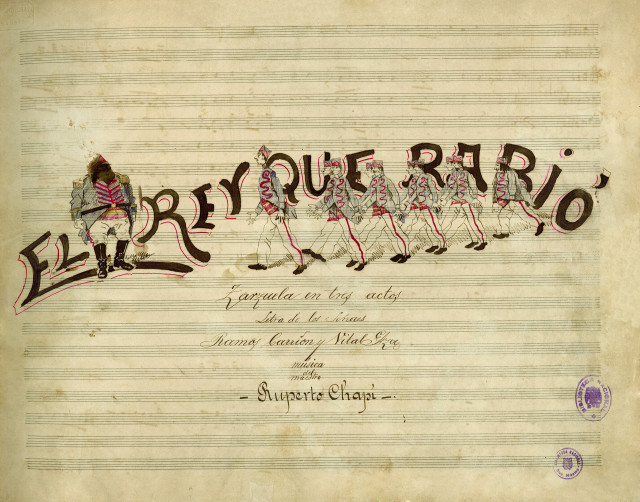 EL REY QUE RABIÓ
Zarzuela en tres actos
Letra de los Señores
Ramos Carrion y Vital Aza
música
maestro
- Ruperto Chapí -.
BIBLIOTECA NACIONAL